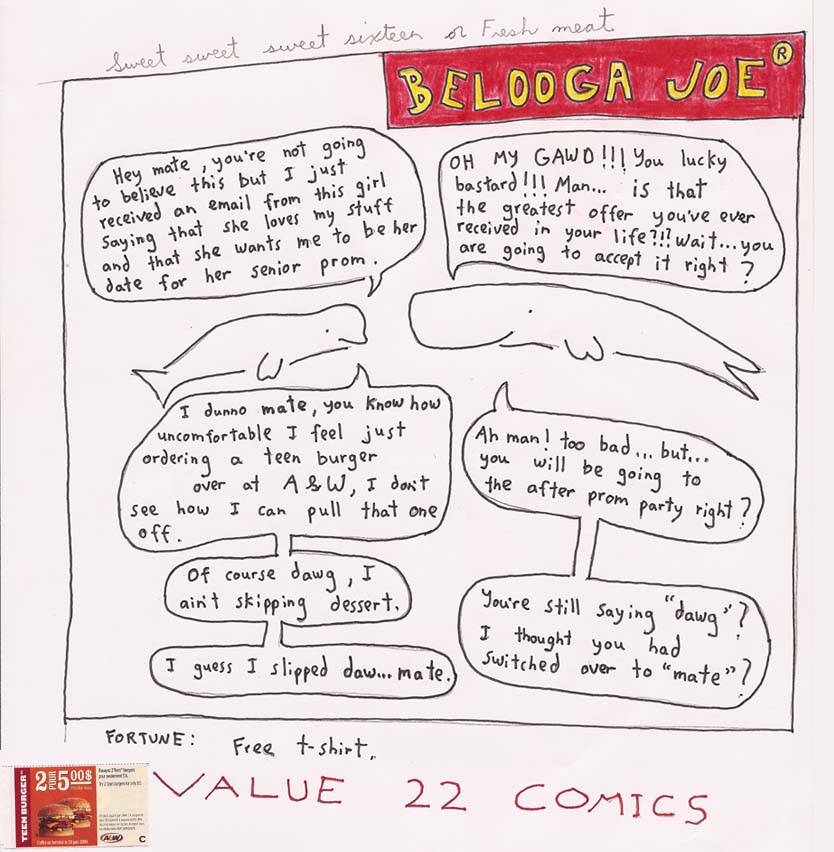 Sweet sweet sweet sixteen or Fresh meat
BELOOGA JOE®
Hey mate, you're not going
to believe this but I just
received an email from this girl
saying that she loves my stuff
and that she wants me to be her
date for her senior prom.
OH MY GAWD!!! You lucky
bastard!!! Man... is that
the greatest offer you've ever
received in your life?!!? Wait...you
are going to accept it right?
I dunno mate, you know how
uncomfortable I feel just
ordering a teen burger
over at A&W, I don't
see how I can pull that one
off.
Ah man! too bad... but...
you will be going to
the after prom party right?
Of course dawg, I
ain't skipping dessert.
You're still saying "dawg"?
I thought you had
switched over to "mate"?
I guess I slipped daw... mate.
FORTUNE: Free t-shirt.
TEEN BURGER
2 POUR 5.00$
A&W
C
VALUE 22 COMICS